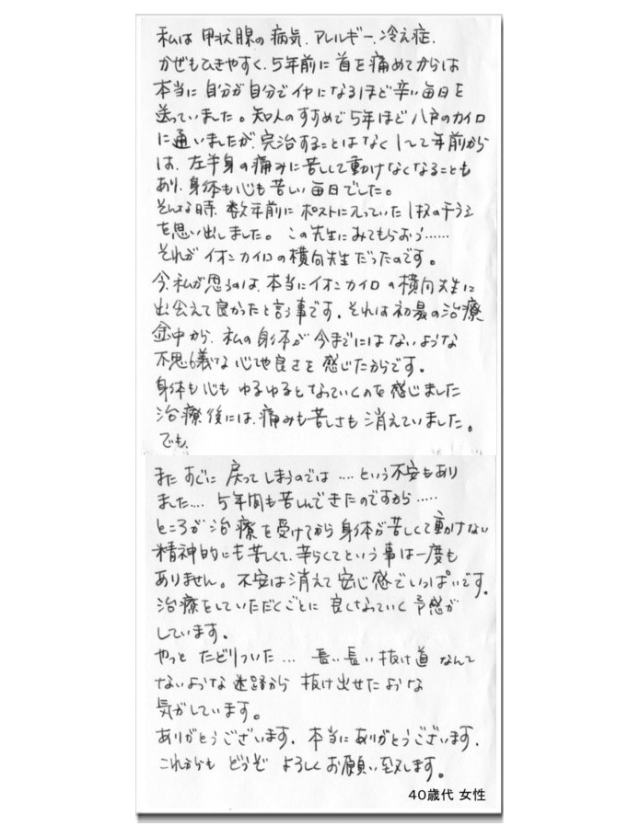 私は 甲状腺の病気、アレルギー、冷え症、
かぜもひきやすく、5年前に首を痛めてからは
本当に自分が自分でイヤになるほど辛い毎日を
送っていました。知人のすすめで5年ほど八戸のカイロ
に通いましたが、完治することはなく1〜2年前から
は、左半身の痛みに苦しくて動けなくなることも
あり、身体も心も苦しい毎日でした。
そんな時、数年前にポストに入っていた1枚のチラシ
を思い出しました。この先生にみてもらおう……
それがイオンカイロの横向先生だったのです。
今、私が思うのは、本当にイオンカイロの横向先生に
出会えて良かったと言う事です。それは初最の治療
途中から、私の身体が今までにはないような
不思議な心地良さを感じたからです。
身体も心もゆるゆるとなっていくのを感じました
治療後には、痛みも苦しさも消えていました。
でも、
またすぐに戻ってしまうのでは‥‥という不安もあり
ました‥‥5年間も苦しんできたのですから‥‥‥
ところが治療を受けてから身体が苦しくて動けない
精神的にも苦しくて、辛らくてという事は一度も
ありません。不安は消えて安心感でいっぱいです。
治療をしていただくごとに良くなっていく予感が
しています。
やっとたどりついた… 長い長い抜け道なんて
ないような迷路から抜け出せたような
気がしています。
ありがとうございます、本当にありがとうございます、
これからもどうぞよろしくお願い致します。
40歳代 女性